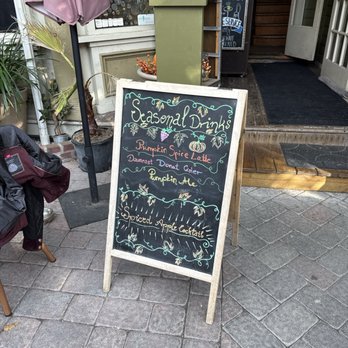 Seasonal Drinks
Pumpkin Spice Latte
Donut Cider
Pumpkin Ale
Spiced Apple Cocktail